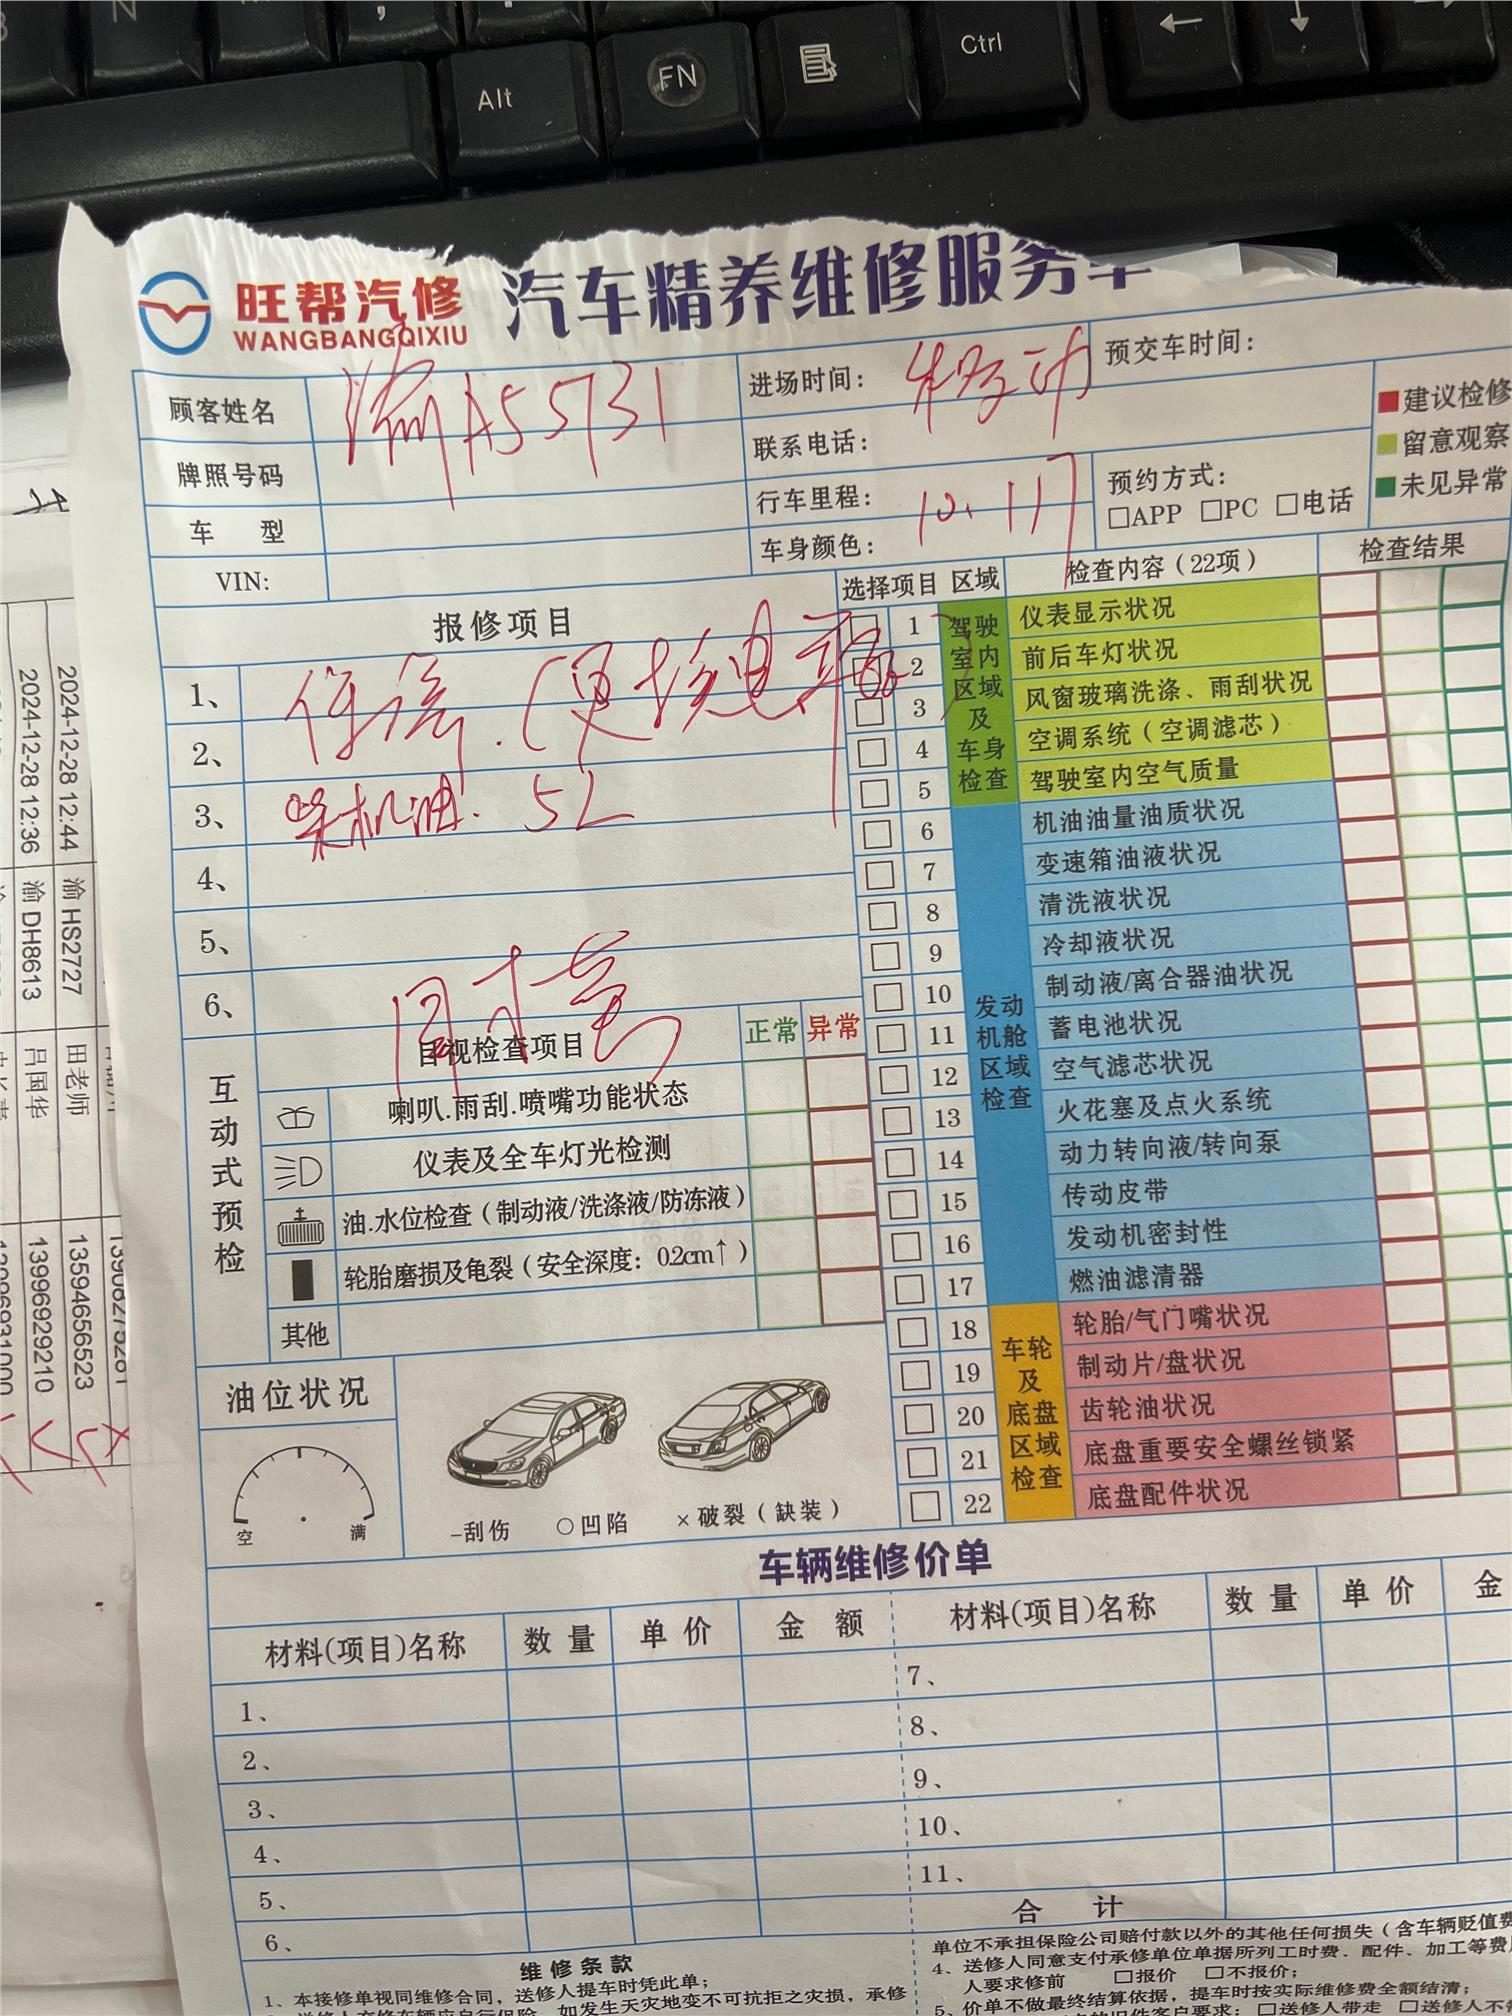 Alt
FN
Ctrl
旺帮汽修
WANGBANGQIXIU
汽车精养维修服务单
顾客姓名
渝A55731
进场时间:
预交车时间:
牌照号码
联系电话:
车 型
行车里程:
10.117
预约方式:
□APP □PC □电话
VIN:
车身颜色:
建议检修
留意观察
未见异常
报修项目
选择项目 区域 检查内容(22项) 检查结果
1、
2、
3、
柴机油. 5L
4、
5、
6、
驾驶室内区域及车身检查
1 仪表显示状况
2 前后车灯状况
3 风窗玻璃洗涤、雨刮状况
4 空调系统(空调滤芯)
5 驾驶室内空气质量
发动机舱区域检查
6 机油油量油质状况
7 变速箱油液状况
8 清洗液状况
9 冷却液状况
10 制动液/离合器油状况
11 蓄电池状况
12 空气滤芯状况
13 火花塞及点火系统
14 动力转向液/转向泵
15 传动皮带
16 发动机密封性
17 燃油滤清器
车轮及底盘区域检查
18 轮胎/气门嘴状况
19 制动片/盘状况
20 齿轮油状况
21 底盘重要安全螺丝锁紧
22 底盘配件状况
互动式预检
目视检查项目 正常 异常
喇叭.雨刮.喷嘴功能状态
仪表及全车灯光检测
油.水位检查(制动液/洗涤液/防冻液)
轮胎磨损及龟裂(安全深度: 0.2cm↑)
其他
油位状况
空 满
-刮伤 ○凹陷 ×破裂(缺装)
车辆维修价单
材料(项目)名称 数量 单价 金 额 材料(项目)名称 数量 单价 金
1、 7、
2、 8、
3、 9、
4、 10、
5、 11、
6、 合 计
维修条款
1、本接修单视同维修合同,送修人提车时凭此单;
如发生天灾地变不可抗拒之灾损,承修
单位不承担保险公司赔付款以外的其他任何损失(含车辆贬值费
4、送修人同意支付承修单位单据所列工时费、配件、加工等费
人要求修前 □报价 □不报价;
5、价单不做最终结算依据,提车时按实际维修费全额结清;
□送修人带走 □送修人不
2024-12-28 12:44 渝 HS2727 田老师 13594656523
2024-12-28 12:36 渝 DH8613 吕国华 13996929210